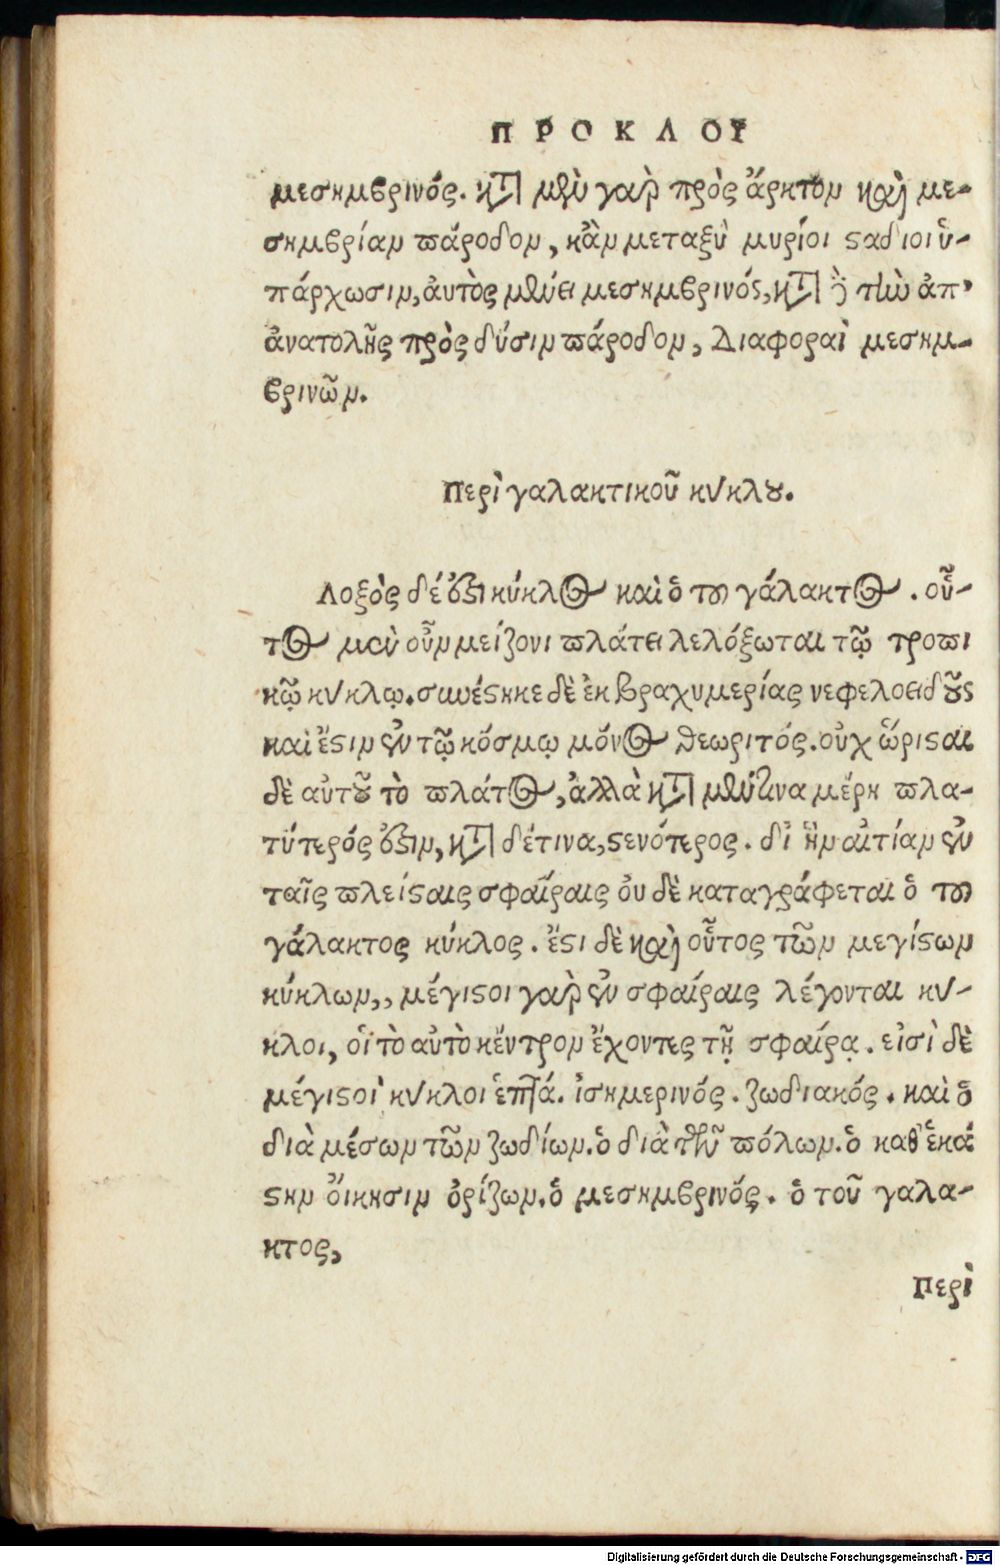 ΠΡΟΚΛΟΥ
μεσημβρινός. κατὰ μὲν γὰρ πρὸς ἄρκτον καὶ με-
σημβρίαν πάροδον, κἂν μεταξὺ μυρίοι στάδιοι ὑ-
πάρχωσιν, αὐτὸς μένει μεσημβρινός, κατὰ δὲ τὴν ἀπ’
ἀνατολῆς πρὸς δύσιν πάροδον, Διαφοραὶ μεσημ-
βρινῶν.
Περὶ γαλακτικοῦ κυκλου.
Λοξὸς δέ ἐστι κύκλος καὶ ὁ του γάλακτος . οὗ-
τος μὲν οὖν μείζονι πλάτει λελόξωται τῷ τροπι
κῷ κυκλῳ. συνέστηκε δὲ ἐκ βραχυμερίας νεφελοειδοῦς
καὶ ἔστιν ἐν τῷ κόσμῳ μόνος θεωριτός. οὐχ ὥρισται
δὲ αὐτοῦ τὸ πλάτος, ἀλλὰ κατὰ μέν τινα μέρη πλα-
τύτερός ἐστιν, κατὰ δέ τινα, στενότερος. δι ἣν αἰτίαν ἐν
ταῖς πλείσταις σφαίραις ὀυ δὲ καταγράφεται ὁ του
γάλακτος κύκλος. ἔστι δὲ καὶ οὗτος τῶν μεγίστων
κύκλων,, μέγιστοι γὰρ ἐν σφαίραις λέγονται κυ-
κλοι, οἱ τὸ αὐτὸ κέντρον ἔχοντες τῇ σφαίρᾳ. εἰσὶ δὲ
μέγιστοι κυκλοι ἑπτά. ἰσημερινός. ζωδιακός. καὶ ὁ
διὰ μέσων τῶν ζωδίων. ὁ διὰ τῶν πόλων. ὁ καθ ἑκά
στην ὄικησιν ὁρίζων. ὁ μεσημβρινός. ὁ τοῦ γαλα-
κτος,
Περὶ
Digitalisierung gefördert durch die Deutsche Forschungsgemeinschaft - DFG